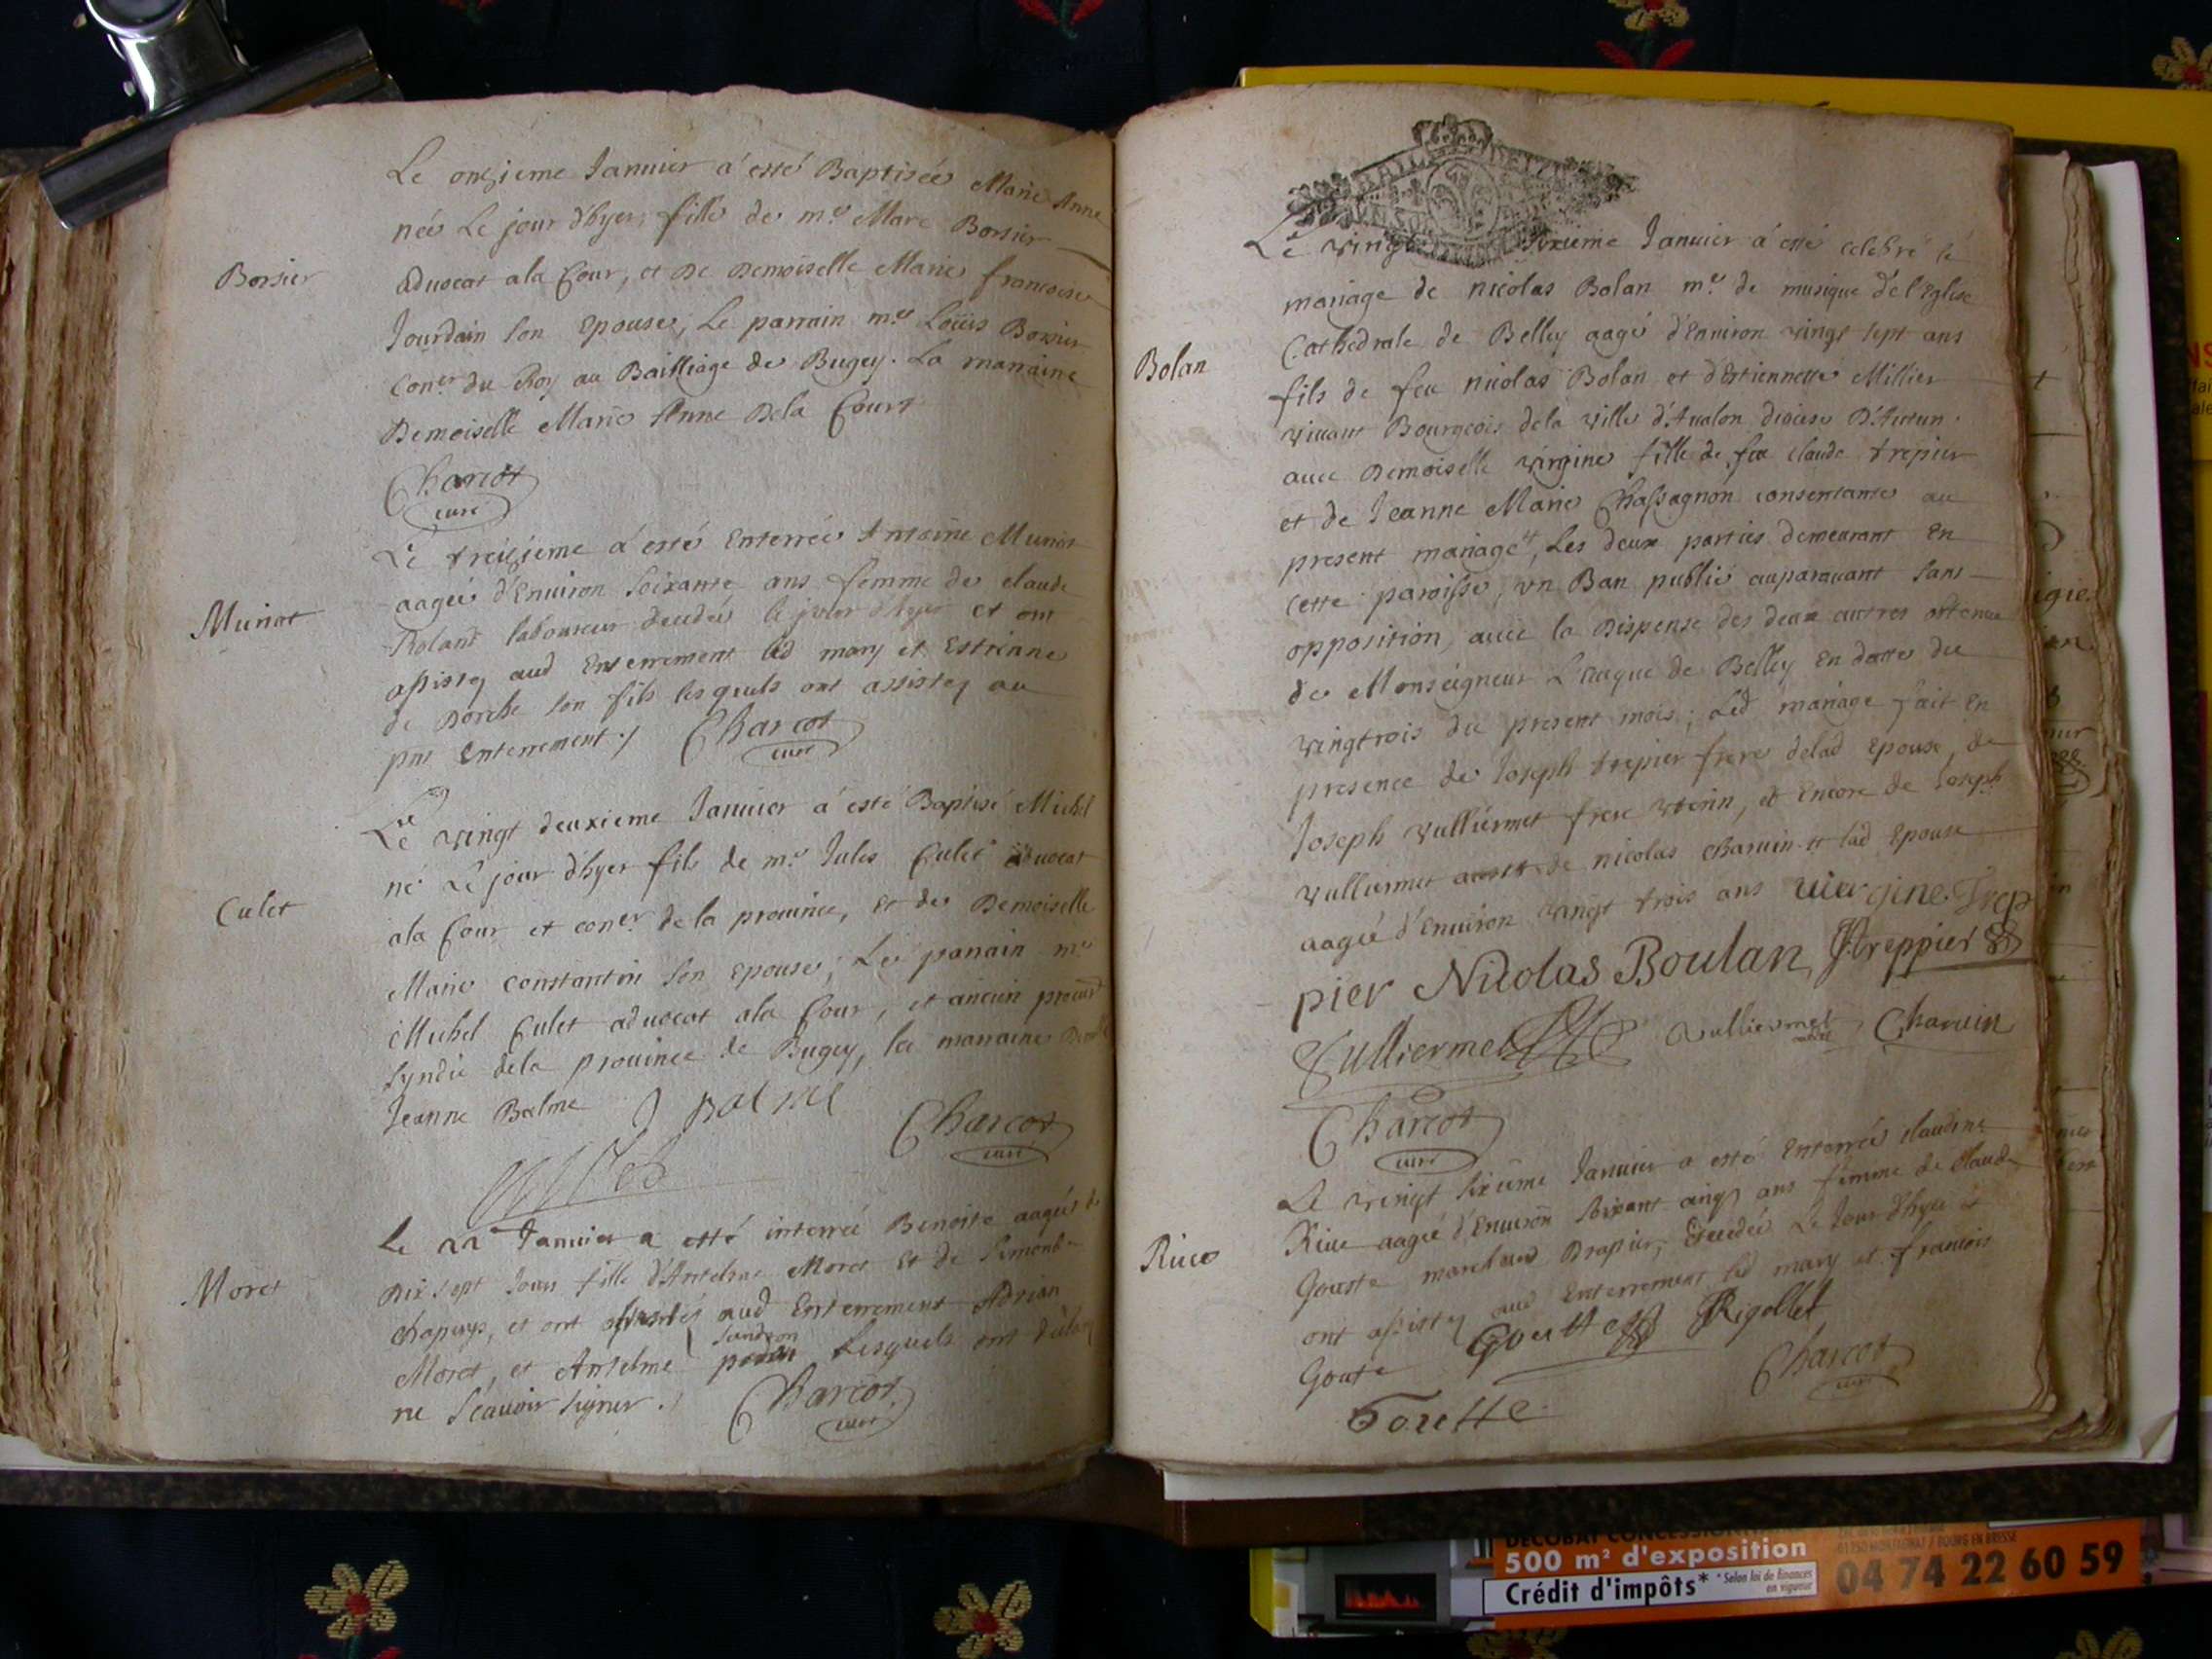 Le onzieme Januier a esté Baptisée Marie Anne
née Le jour d'hyer, fille de m.e Marc Borsier
Borsier
aduocat ala Cour, et De Demoiselle Marie francoise
Jourdain son Epouse; Le parrain m.e Loüis Borsier
Con.er du Roy au Bailliage de Bugey. La marraine
Demoiselle Marie Anne Dela Court
Charcot
curé
Le treizieme a esté Enterrée Antoine Munat
aagée d'Enuiron Soixante ans femme de claude
Munat
Roland laboureur decedée le jour d'hyer et ont
assistez aud Enterrement led mary et Estienne
de Dorche son fils lesquels ont assistez au
pnt Enterrement ./ Charcot
curé
Le vingt deuxieme Januier a esté Baptisé Michel
né Le jour d'hyer fils de m.e Jules Culet aduocat
Culet
ala Cour et con.er de la prouince, et de Demoiselle
Marie Constantin son Epouse; Le parrain m.e
Michel Culet aduocat ala Cour, et ancien
Syndic dela prouince de Bugey, la marraine
Jeanne Balme J Balme
Charcot
curé
Le 22 Januier a esté interrée Benoite aagée de
Dix sept Jours fille d'Antelme Moret Et de
Moret
et ont assistés aud Enterrement Adrian
Moret, et Antelme Lesquels ont
ne Scauoir signer ./ Charcot
curé
Le vingt sixieme Januier a esté celebré le
mariage de nicolas Bolan m.e de musique de l'Eglise
Cathedrale de Belley aagé d'Enuiron vingt sept ans
Bolan
fils de feu nicolas Bolan et d'Estiennette Millier
viuant Bourgeois dela ville d'Aualon diocese D'Autun
auec Demoiselle virgine fille de feu claude trepier
et de Jeanne Marie Chassagnon consentante au
present mariage, Les deux parties demeurant En
cette paroisse, vn Ban publié auparauant sans
opposition, auec la Dispense des deux autres obtenue
de Monseigneur L'Euaque de Belley En datte du
vingtrois du present mois; Led mariage fait En
presence de Joseph trepier frere delad Epouse, de
Joseph vulliermet frere vterin, et Encore de Joseph
vulliermet de nicolas charuin et lad Epouse
aagée d'Enuiron vingt trois ans viergine Trep
pier Nicolas Boulan Jtreppier
Vulliermet Vulliermet Charuin
Charcot
curé
Le vingt sixieme Januier a esté Enterrée claudine
Riue aagée d'Enuiron soixant cinq ans femme de claude
Riue
Gouste marchand Drapier, Decedée Le Jour d'hyer et
ont assistez aud Enterrement led mary et francois
Goute Goutte Rigollet
Charcot
curé
Goutte
500 m² d'exposition
Crédit d'impôts* *Selon loi de finances
en vigueur
04 74 22 60 59